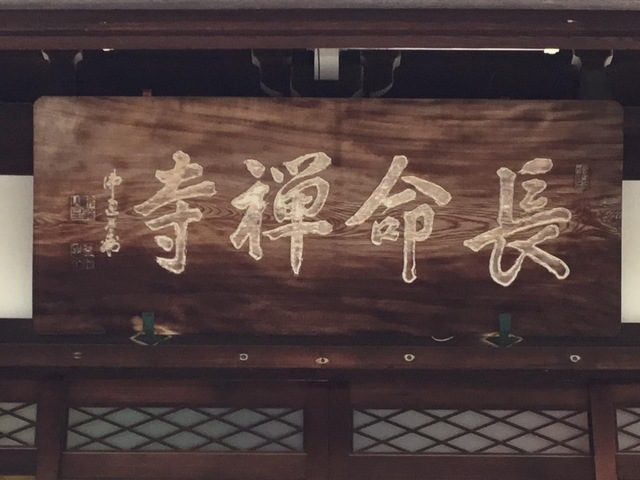 長命禅寺